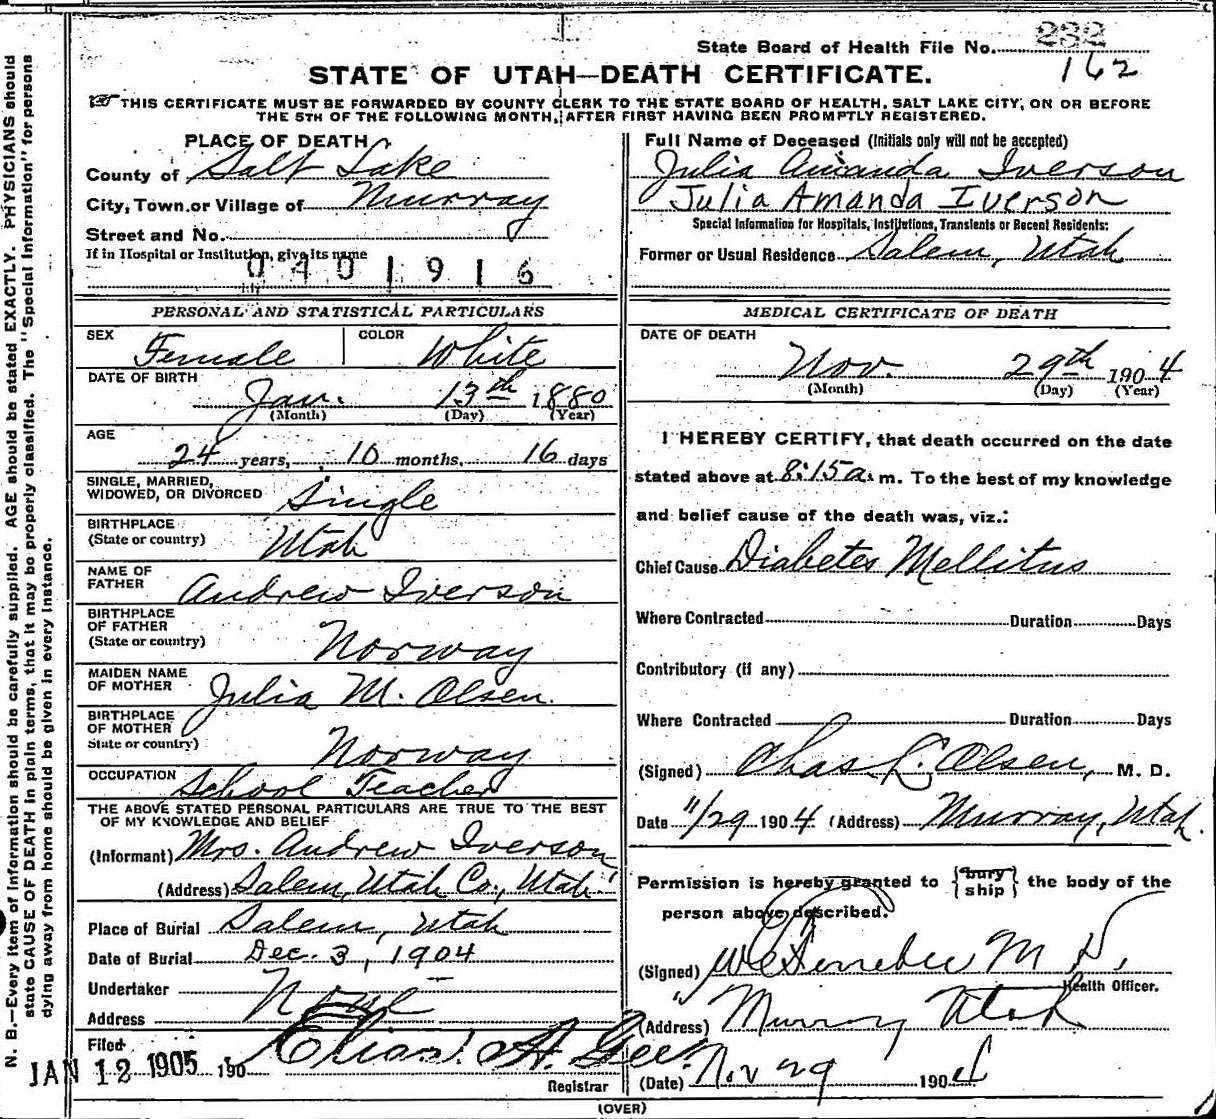 State Board of Health File No. 232
162
STATE OF UTAH—DEATH CERTIFICATE.
THIS CERTIFICATE MUST BE FORWARDED BY COUNTY CLERK TO THE STATE BOARD OF HEALTH, SALT LAKE CITY, ON OR BEFORE
THE 5TH OF THE FOLLOWING MONTH, AFTER FIRST HAVING BEEN PROMPTLY REGISTERED.
PLACE OF DEATH
County of Salt Lake
City, Town or Village of Murray
Street and No.
If in Hospital or Institution, give its name
0401916
Full Name of Deceased (Initials only will not be accepted)
Julia Amanda Iverson
Julia Amanda Iverson
Special Information for Hospitals, Institutions, Transients or Recent Residents:
Former or Usual Residence Salem, Utah
PERSONAL AND STATISTICAL PARTICULARS
SEX Female COLOR White
DATE OF BIRTH
Jan. 13th 1880
(Month) (Day) (Year)
AGE
24 years, 10 months, 16 days
SINGLE, MARRIED,
WIDOWED, OR DIVORCED Single
BIRTHPLACE
(State or country) Utah
NAME OF
FATHER Andrew Iverson
BIRTHPLACE
OF FATHER
(State or country) Norway
MAIDEN NAME
OF MOTHER Julia M. Olsen.
BIRTHPLACE
OF MOTHER
State or country) Norway
OCCUPATION School Teacher
THE ABOVE STATED PERSONAL PARTICULARS ARE TRUE TO THE BEST
OF MY KNOWLEDGE AND BELIEF
(Informant) Mrs. Andrew Iverson,
(Address) Salem, Utah Co., Utah.
Place of Burial Salem, Utah
Date of Burial Dec. 3, 1904
Undertaker None
Address
Filed
JAN 12 1905 190
Elias A. Gee.
Registrar
MEDICAL CERTIFICATE OF DEATH
DATE OF DEATH
Nov. 29th 1904
(Month) (Day) (Year)
I HEREBY CERTIFY, that death occurred on the date
stated above at 8:15 a. m. To the best of my knowledge
and belief cause of the death was, viz.:
Chief Cause Diabetes Mellitus
Where Contracted Duration Days
Contributory (if any)
Where Contracted Duration Days
(Signed) Chas. L. Olsen, M. D.
Date 11/29 1904 (Address) Murray, Utah.
Permission is hereby granted to {bury
ship} the body of the
person above described.
(Signed) M D,
Health Officer.
(Address) Murray Utah
(Date) Nov 29 1904
(OVER)
N. B.—Every item of information should be carefully supplied. AGE should be stated EXACTLY. PHYSICIANS should
state CAUSE OF DEATH in plain terms, that it may be properly classified. The "Special Information" for persons
dying away from home should be given in every instance.